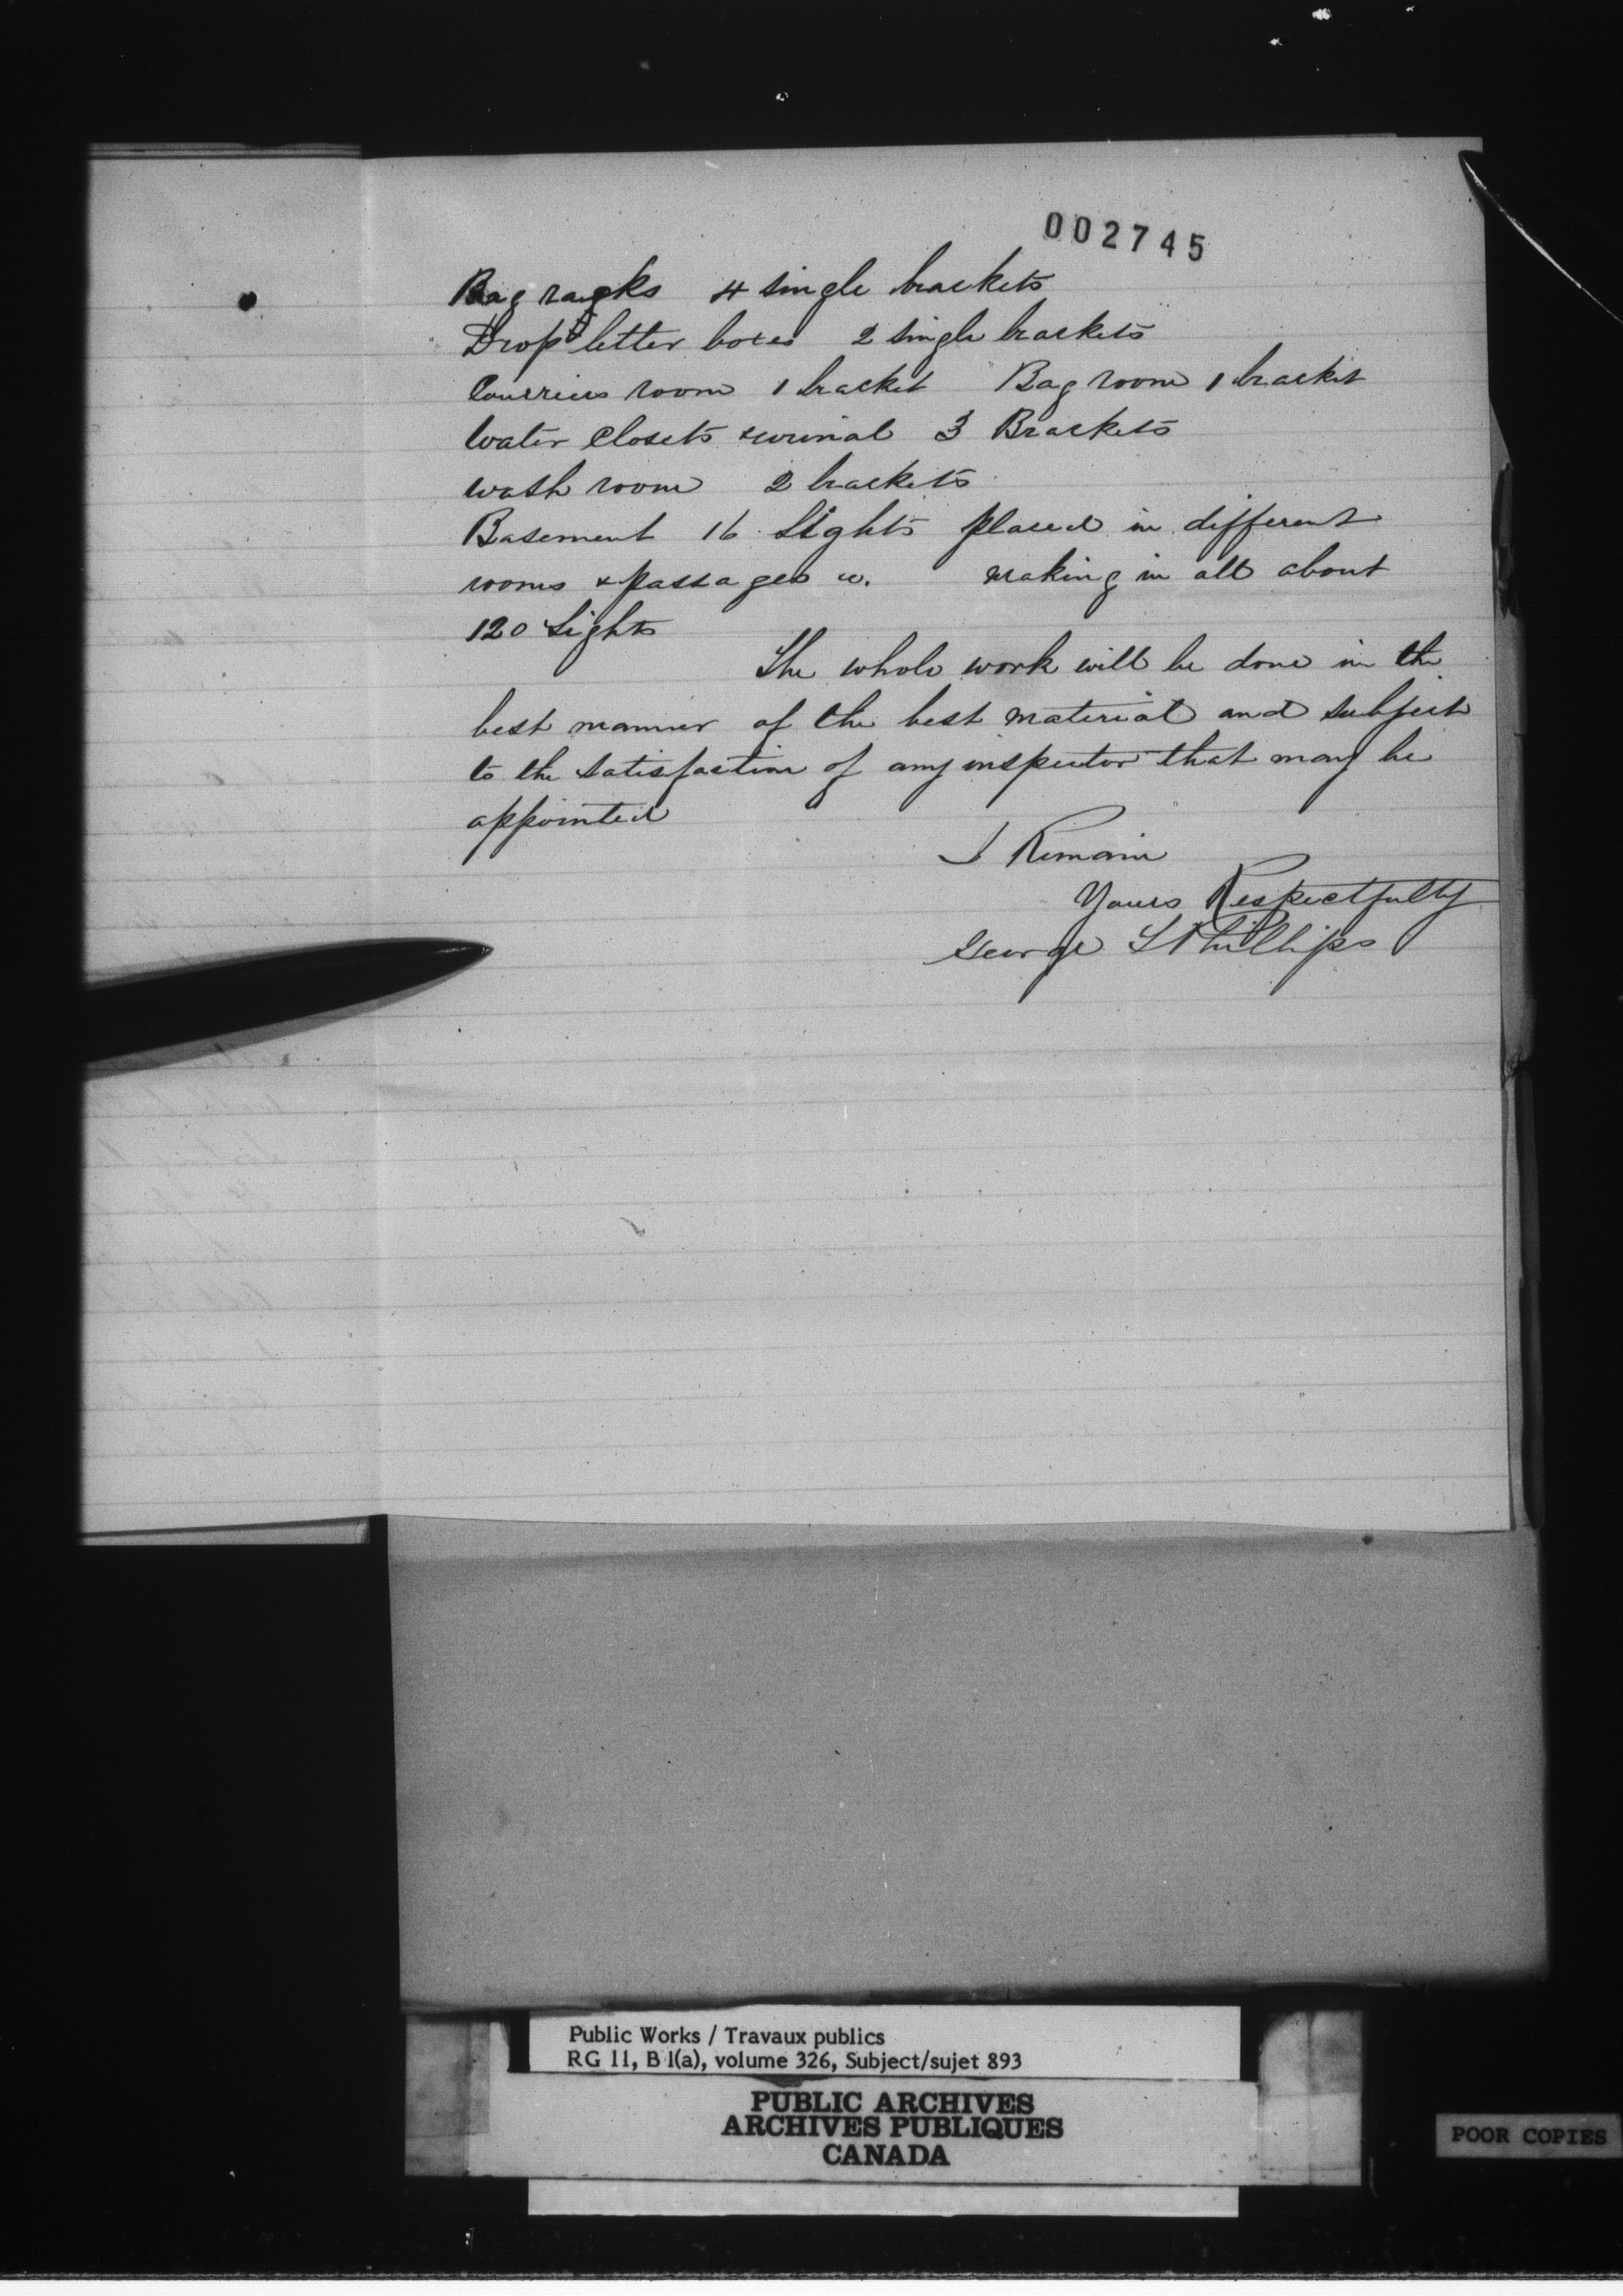 002745
Bag racks 4 single brackets
Drop letter boxes 2 single brackets
Couriers room 1 bracket Bag room 1 bracket
Water Closets & urinal 3 Brackets
Wash room 2 brackets
Basement 16 Lights placed in different
rooms & passages &c. making in all about
120 Lights
The whole work will be done in the
best manner of the best material and subject
to the satisfaction of any inspector that may be
appointed
I Remain
Yours Respectfully
George Phillips
Public Works / Travaux publics
RG 11, B 1(a), volume 326, Subject/sujet 893
PUBLIC ARCHIVES
ARCHIVES PUBLIQUES
CANADA
POOR COPIES